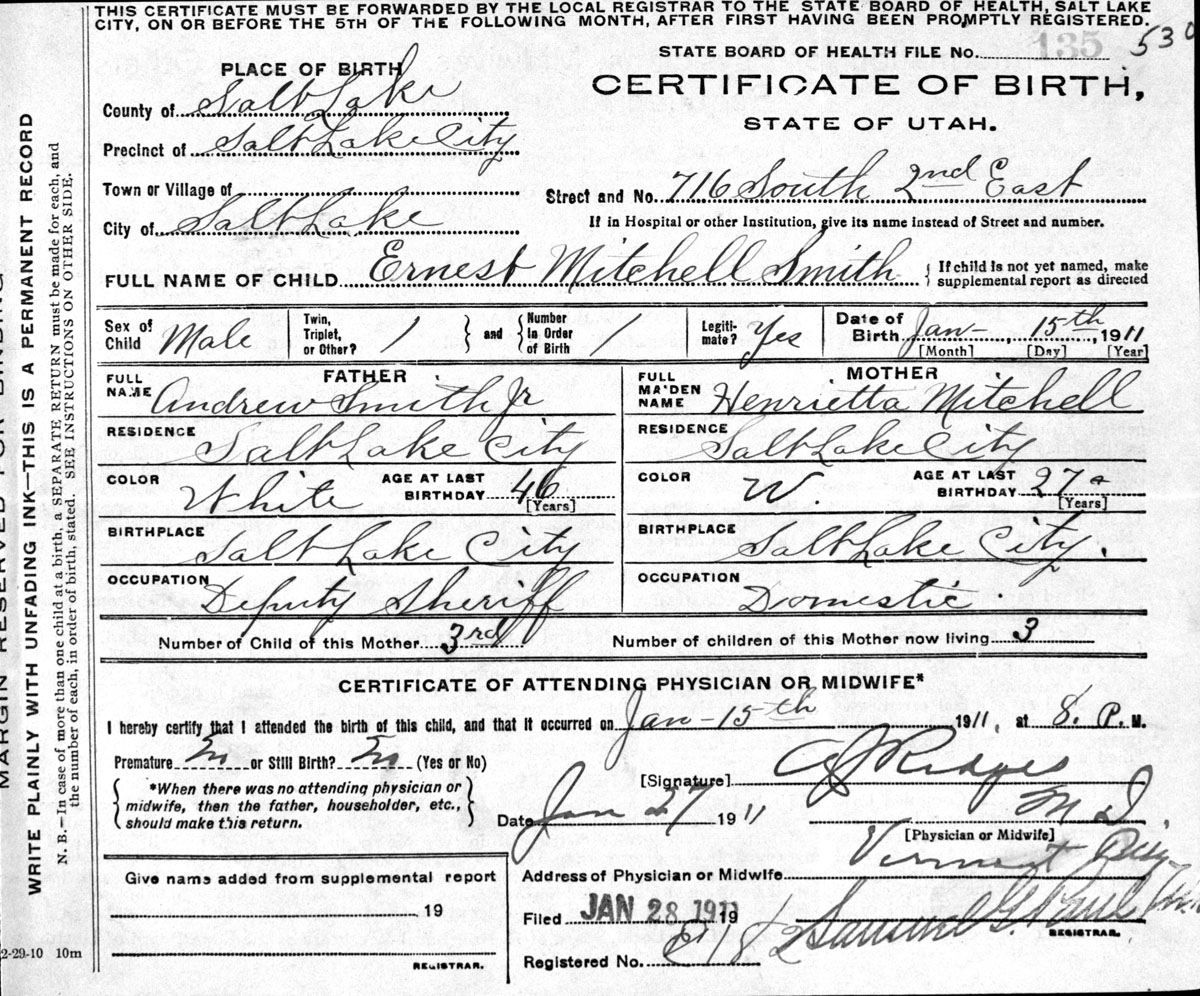 THIS CERTIFICATE MUST BE FORWARDED BY THE LOCAL REGISTRAR TO THE STATE BOARD OF HEALTH, SALT LAKE
CITY, ON OR BEFORE THE 5TH OF THE FOLLOWING MONTH, AFTER FIRST HAVING BEEN PROMPTLY REGISTERED.
STATE BOARD OF HEALTH FILE No. 135 530
PLACE OF BIRTH
CERTIFICATE OF BIRTH,
STATE OF UTAH.
County of Salt Lake
Precinct of Salt Lake City
Town or Village of
Street and No. 716 South 2nd East
City of Salt Lake
If in Hospital or other Institution, give its name instead of Street and number.
FULL NAME OF CHILD Ernest Mitchell Smith
If child is not yet named, make
supplemental report as directed
Sex of Child Male
Twin, Triplet, or Other? 1 and Number in Order of Birth 1
Legiti-mate? Yes
Date of Birth Jan- 15th, 1911
[Month] [Day] [Year]
FATHER
MOTHER
FULL NAME Andrew Smith Jr
FULL MAIDEN NAME Henrietta Mitchell
RESIDENCE Salt Lake City
RESIDENCE Salt Lake City
COLOR White AGE AT LAST BIRTHDAY 46 [Years]
COLOR W. AGE AT LAST BIRTHDAY 27 [Years]
BIRTHPLACE Salt Lake City
BIRTHPLACE Salt Lake City.
OCCUPATION Deputy Sheriff
OCCUPATION Domestic.
Number of Child of this Mother 3rd Number of children of this Mother now living 3
CERTIFICATE OF ATTENDING PHYSICIAN OR MIDWIFE*
I hereby certify that I attended the birth of this child, and that it occurred on Jan-15th 1911, at 8. P. M.
Premature No or Still Birth? No (Yes or No)
[Signature]
*When there was no attending physician or
midwife, then the father, householder, etc.,
should make this return.
Date Jan 27 1911
M D.
[Physician or Midwife]
Address of Physician or Midwife Vermont
Give name added from supplemental report
19
REGISTRAR.
Filed JAN 28 1911 19
Samuel G. Paul
REGISTRAR.
Registered No.
2-29-10 10m
MARGIN RESERVED FOR BINDING
WRITE PLAINLY WITH UNFADING INK—THIS IS A PERMANENT RECORD
N. B.—In case of more than one child at a birth, a SEPARATE RETURN must be made for each, and
the number of each, in order of birth, stated. SEE INSTRUCTIONS ON OTHER SIDE.